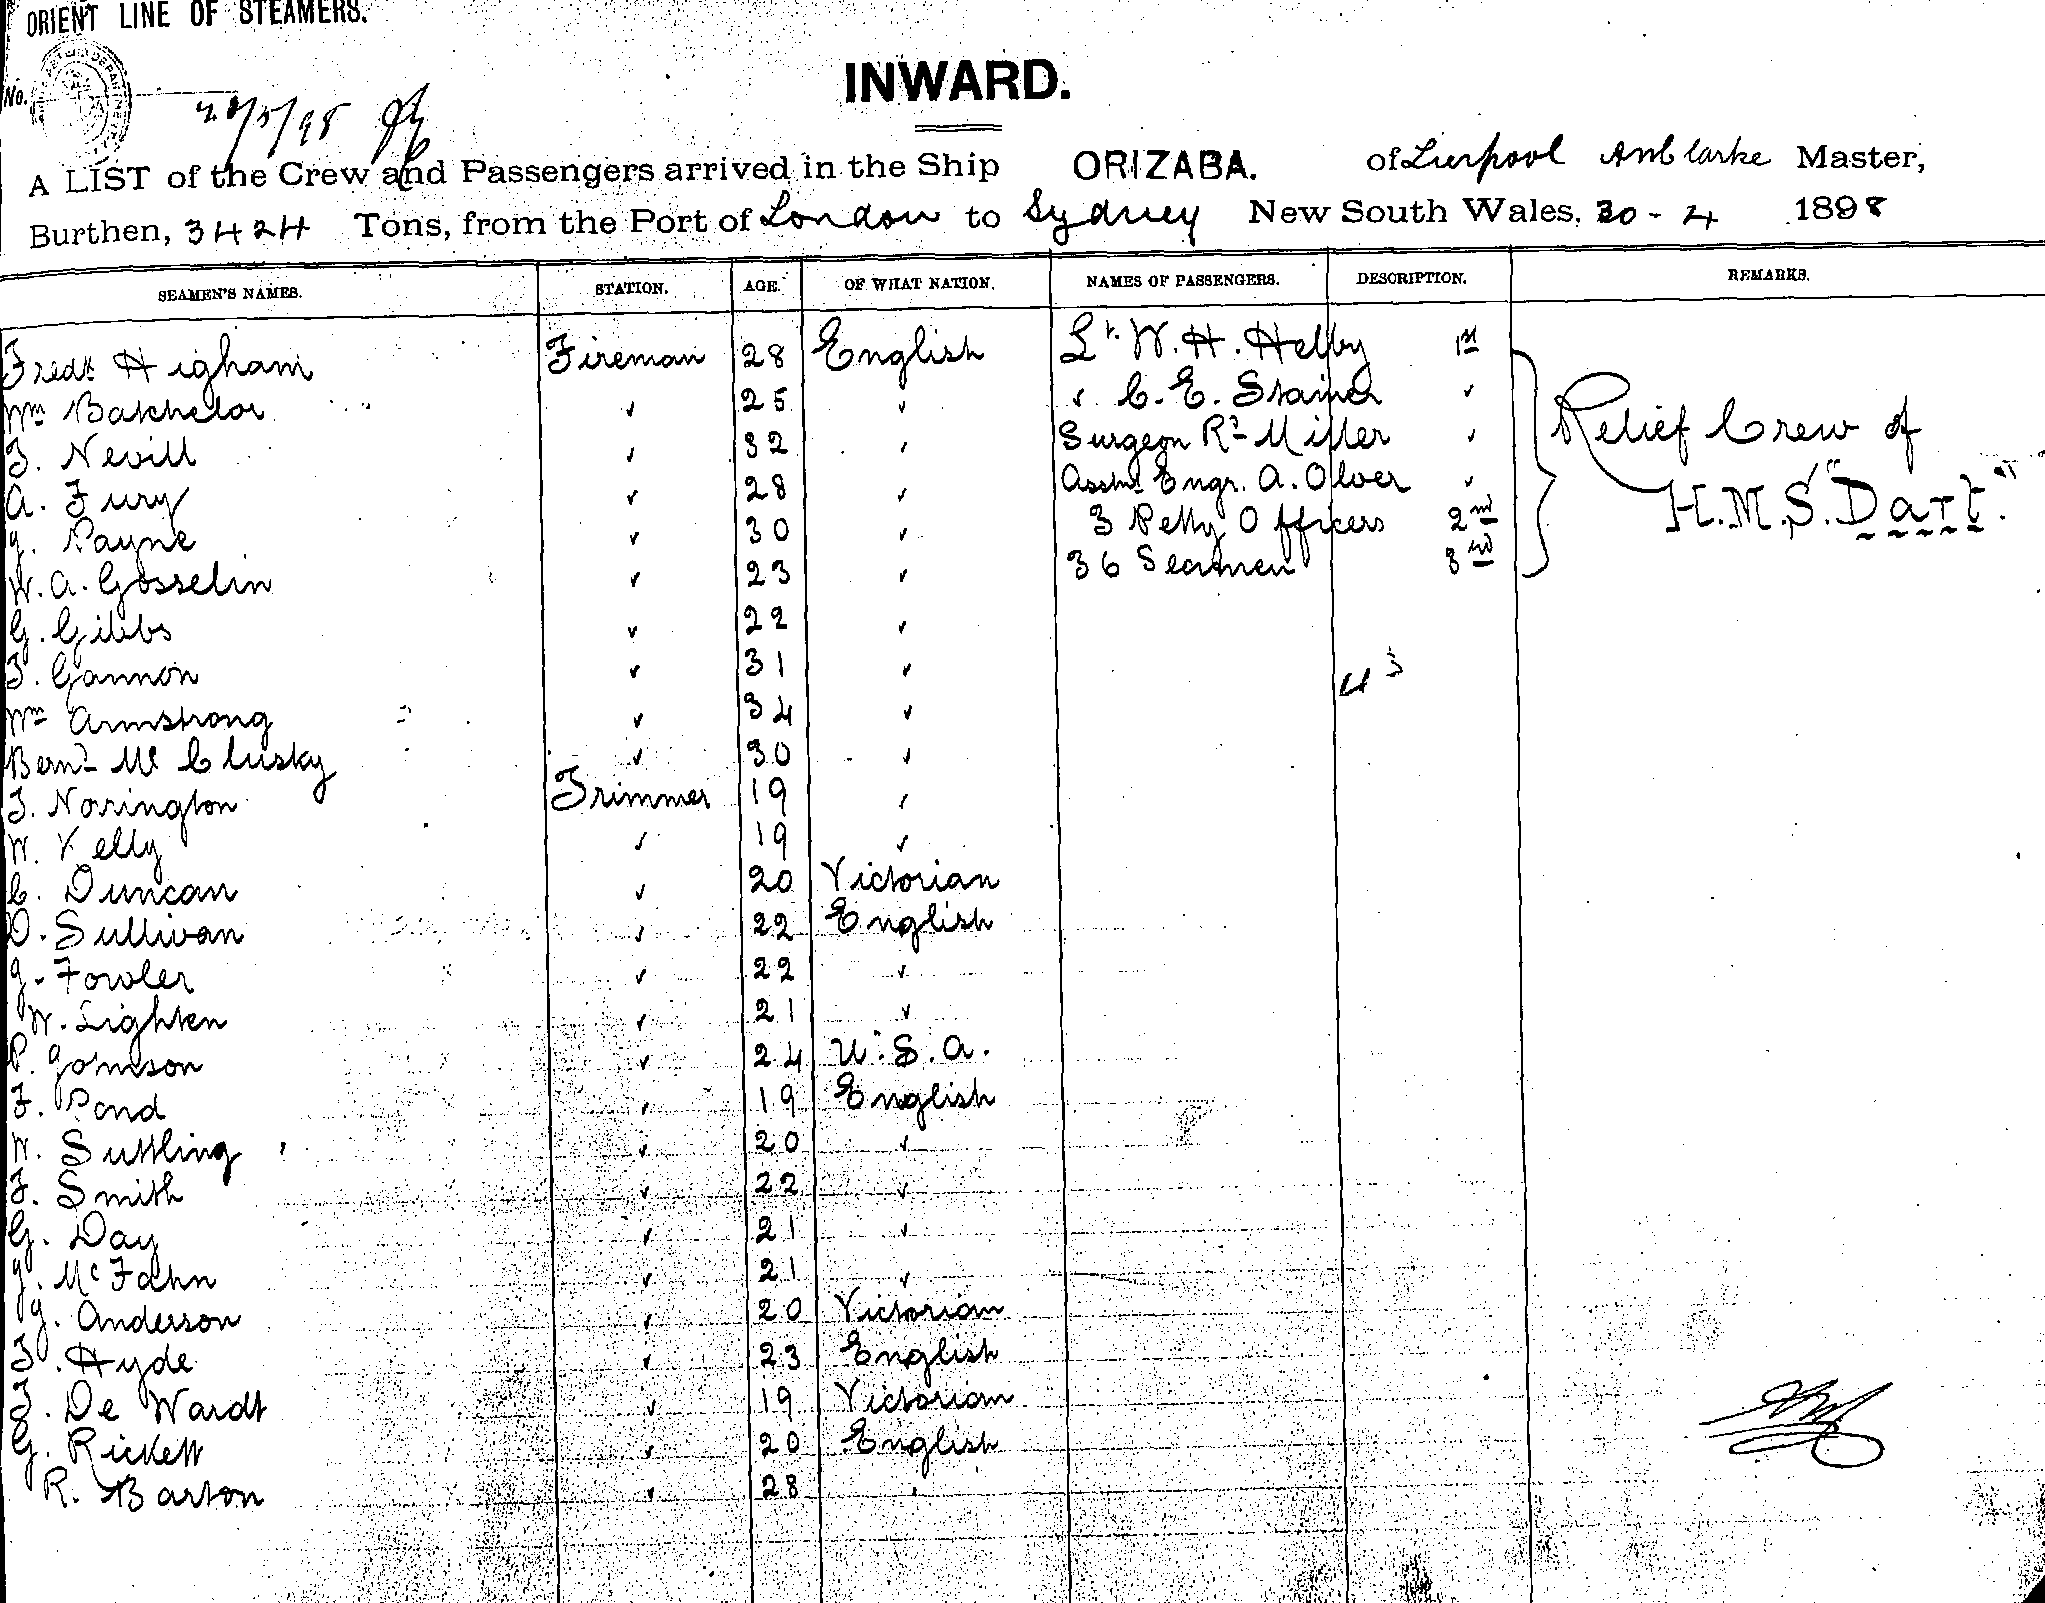 ORIENT LINE OF STEAMERS.
INWARD.
No.
A LIST of the Crew and Passengers arrived in the Ship ORIZABA. of Liverpool A W Clarke Master,
Burthen, 3424 Tons, from the Port of London to Sydney New South Wales, 30 - 4 1898
SEAMEN'S NAMES. STATION. AGE. OF WHAT NATION. NAMES OF PASSENGERS. DESCRIPTION. REMARKS.
Fredk Higham Fireman 28 English Lt. W. H. Helby 1st
Wm Batchelor " 25 " " C. E. Stainer "
T. Nevill " 32 " Surgeon Rd Miller " Relief Crew of
A. Fury " 28 " Asstnt Engr. A. Olver " H.M.S. "Dart".
J. Payne " 30 " 3 Petty Officers 2nd
W. A. Gosselin " 23 " 36 Seamen 3rd
G. Gibbs " 22 "
T. Gannon " 31 " 43
Wm Armstrong " 34 "
Bernd Mc Clusky " 30 "
T. Norington Trimmer 19 "
W. Kelly " 19 "
C. Duncan " 20 Victorian
D. Sullivan " 22 English
J. Fowler " 22 "
W. Lighten " 21 "
P. Johnson " 24 U.S.A.
F. Pond " 19 English
W. Suttling " 20 "
F. Smith " 22 "
G. Day " 21 "
J. McFahn " 21 "
J. Anderson " 20 Victorian
T. Hyde " 23 English
T. De Wardt " 19 Victorian
G. Rickett " 20 English
R. Barton " 28 "